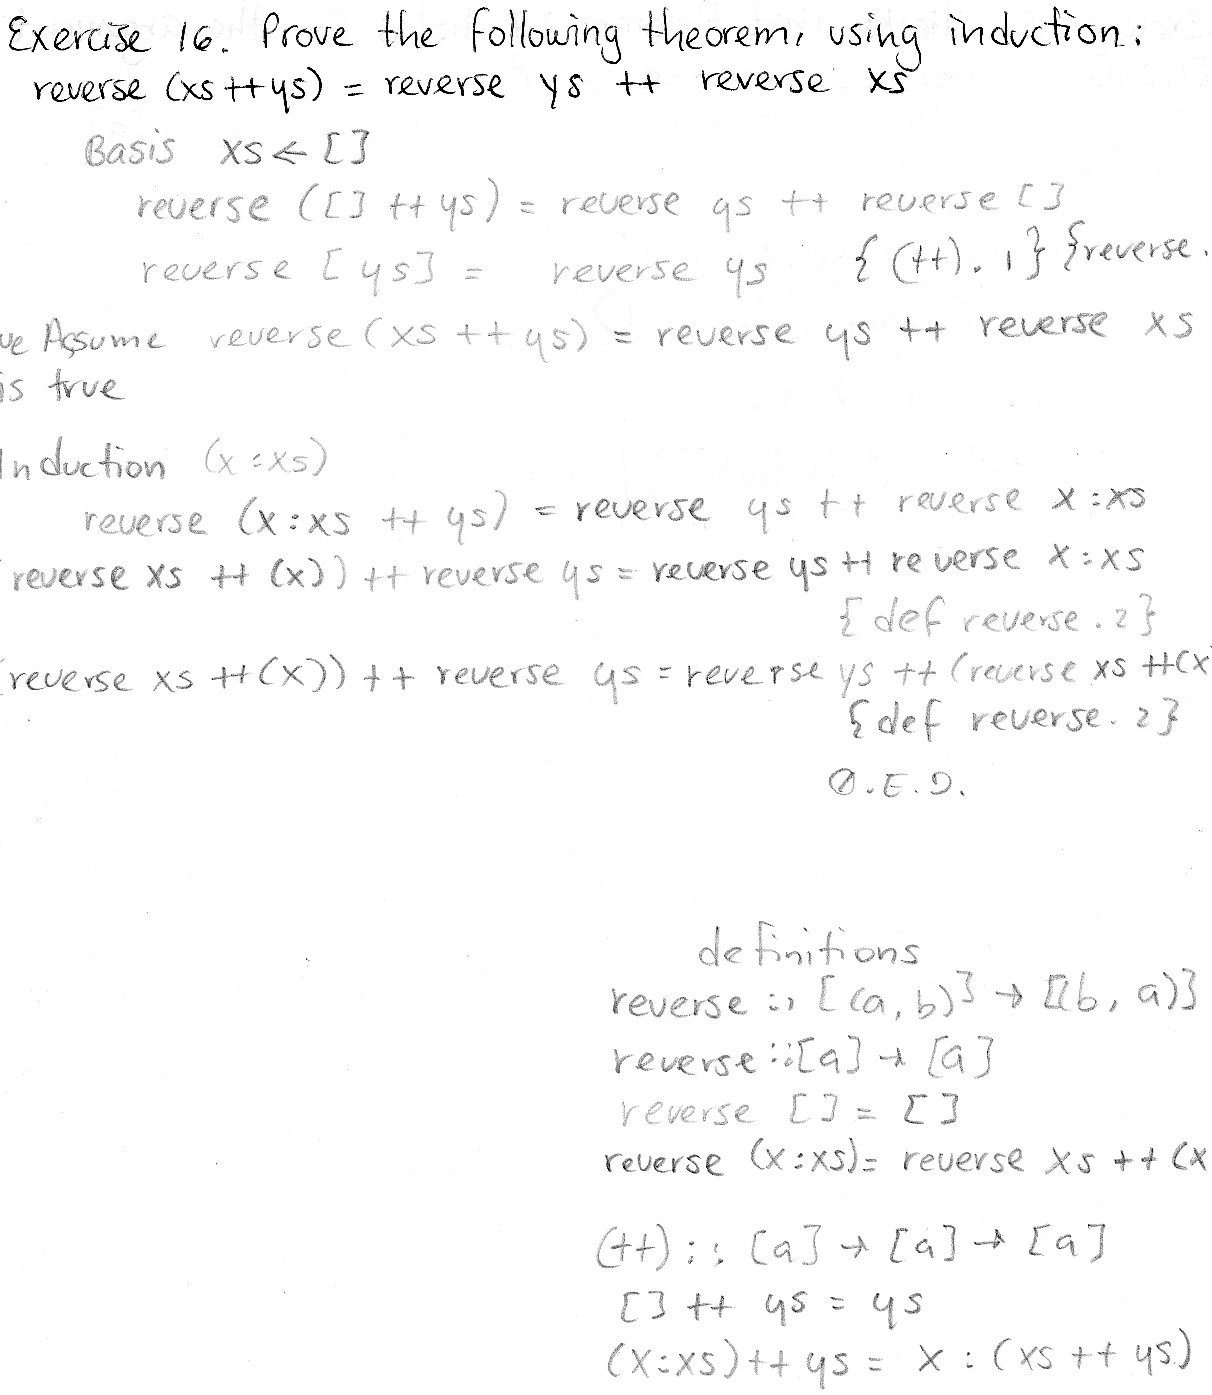 Exercise 16. Prove the following theorem, using induction:
reverse (xs ++ ys) = reverse ys ++ reverse xs
Basis xs ← []
reverse ([] ++ ys) = reverse ys ++ reverse []
reverse [ys] = reverse ys {(++).1} {reverse.
ve Assume reverse (xs ++ ys) = reverse ys ++ reverse xs
is true
Induction (x:xs)
reverse (x:xs ++ ys) = reverse ys ++ reverse x:xs
reverse xs ++ (x)) ++ reverse ys = reverse ys ++ reverse x:xs
{def reverse.2}
(reverse xs ++ (x)) ++ reverse ys = reverse ys ++ (reverse xs ++ (x
{def reverse.2}
Q.E.D.
definitions
reverse :: [(a, b)] → [(b, a)]
reverse :: [a] → [a]
reverse [] = []
reverse (x:xs) = reverse xs ++ (x
(++) :: [a] → [a] → [a]
[] ++ ys = ys
(x:xs) ++ ys = x : (xs ++ ys)